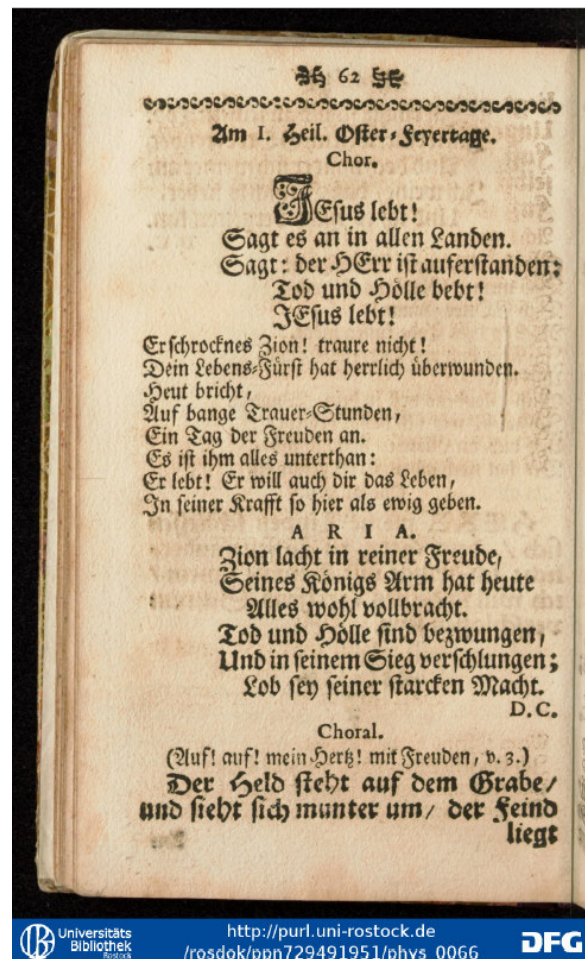 62
Am I. Heil. Oster-Feyertage.
Chor.
JEsus lebt!
Sagt es an in allen Landen.
Sagt: der HErr ist auferstanden:
Tod und Hölle bebt!
JEsus lebt!
Erschrocknes Zion! traure nicht!
Dein Lebens-Fürst hat herrlich überwunden.
Heut bricht,
Auf bange Trauer-Stunden,
Ein Tag der Freuden an.
Es ist ihm alles unterthan:
Er lebt! Er will auch dir das Leben,
In seiner Krafft so hier als ewig geben.
A R I A.
Zion lacht in reiner Freude,
Seines Königs Arm hat heute
Alles wohl vollbracht.
Tod und Hölle sind bezwungen,
Und in seinem Sieg verschlungen;
Lob sey seiner starcken Macht.
D. C.
Choral.
(Auf! auf! mein Hertz! mit Freuden, v. 3.)
Der Held steht auf dem Grabe/
und sieht sich munter um/ der Feind
liegt
Universitäts
Bibliothek
Rostock
http://purl.uni-rostock.de
/rosdok/ppn729491951/phys_0066
DFG